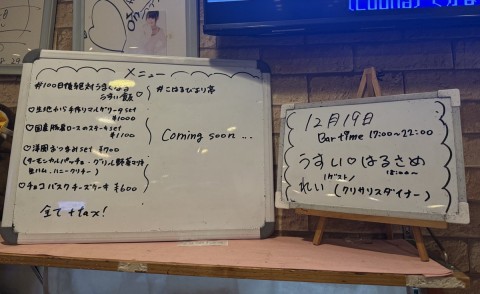 メニュー
#100日後絶対うまくなる
うすい飯♡
♡生地から手作りマルゲリータset
¥1000
♡国産豚肩ロースのステーキset
¥1100
♡洋風おつまみset ¥700
(サーモンカルパッチョ・グリル野菜
生ハム・ハニー
♡チョコバスクチーズケーキ ¥600
全て+tax!
#こはるびより亭
Coming soon...
12月19日
Bartime 17:00~22:00
うすい♡はるさめ
18:00~
ゲスト
れい(クリサリスダイナー)